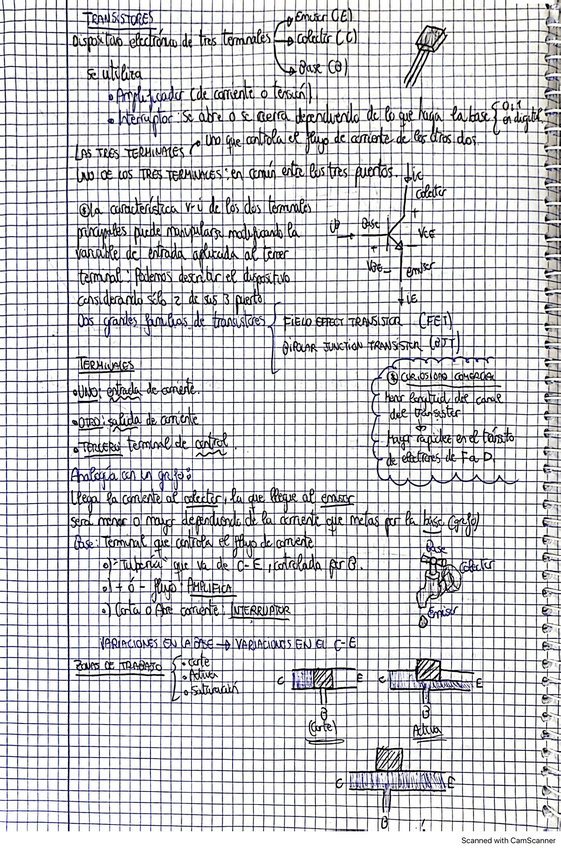 TRANSISTORES
Dispositivo electrónico de tres terminales
Emisor (E)
Colector (C)
Base (B)
se utiliza
• Amplificador (de corriente o tensión)
• Interruptor: Se abre o se cierra dependiendo de lo que haga la base { 0,1 en digital
LAS TRES TERMINALES → Uno que controla el flujo de corriente de los otros dos.
UNO DE LOS TRES TERMINALES: en común entre los tres puertos.
La característica V-i de los dos terminales
principales puede manipularse modificando la
variable de entrada aplicada al tercer
terminal: Podemos describir el dispositivo
considerando sólo 2 de sus 3 puerto
IC
Colector
Base
VCE
VBE
emisor
IE
Dos grandes familias de transistores
FIELD EFFECT TRANSISTOR (FET)
BIPOLAR JUNCTION TRANSISTOR (BJT)
TERMINALES
• UNO: entrada de corriente.
• OTRO: salida de corriente
• TERCERO: terminal de control.
CURIOSIDAD COMERCIAL
Menor longitud del canal
del transistor
Mayor rapidez en el tránsito
de electrones de F a D.
Analogía con un grifo:
Llega la corriente al colector, la que llegue al emisor
será menor o mayor dependiendo de la corriente que metas por la base (grifo)
Base: Terminal que controla el flujo de corriente
•) "Tubería" que va de C-E, controlada por B.
•) + ó - flujo: AMPLIFICA
•) Corta o Abre corriente: INTERRUPTOR
Base
Colector
Emisor
VARIACIONES EN LA BASE → VARIACIONES EN EL C-E
ZONAS DE TRABAJO
• Corte
• Activa
• Saturación
C E
B
(Corte)
C E
B
Activa
C E
B
Scanned with CamScanner